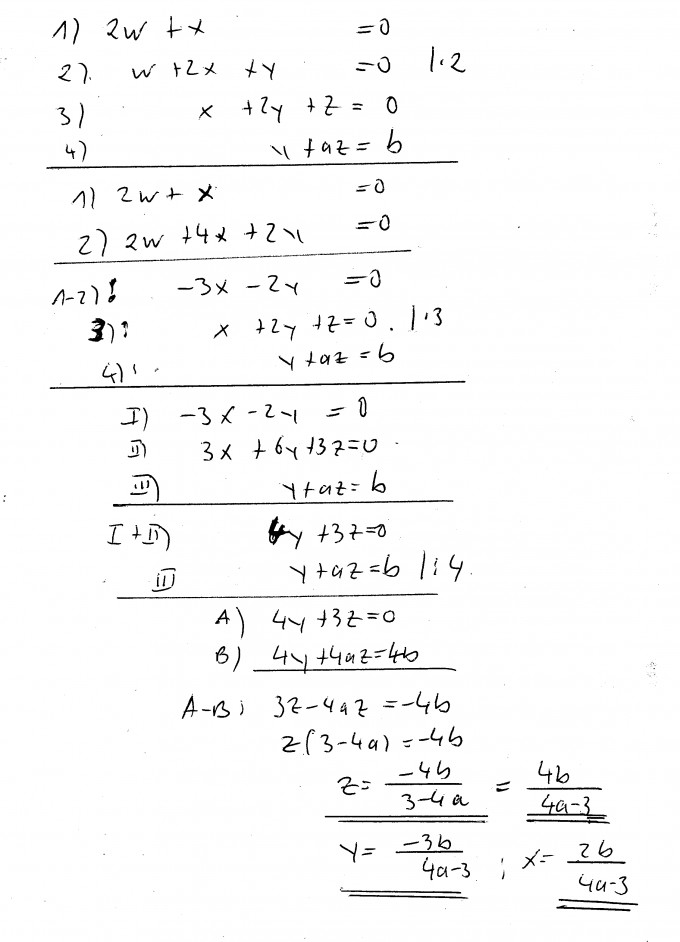 1) 2w + x = 0
2) w + 2x + y = 0 |·2
3) x + 2y + z = 0
4) y + az = b
1) 2w + x = 0
2) 2w + 4x + 2y = 0
1-2): -3x - 2y = 0
3): x + 2y + z = 0 . |·3
4): y + az = b
I) -3x - 2y = 0
II) 3x + 6y + 3z = 0
III) y + az = b
I + II) 4y + 3z = 0
III y + az = b |·4
A) 4y + 3z = 0
B) 4y + 4az = 4b
A-B: 3z - 4az = -4b
z(3-4a) = -4b
z = -4b / 3-4a = 4b / 4a-3
y = -3b / 4a-3 ; x = 2b / 4a-3